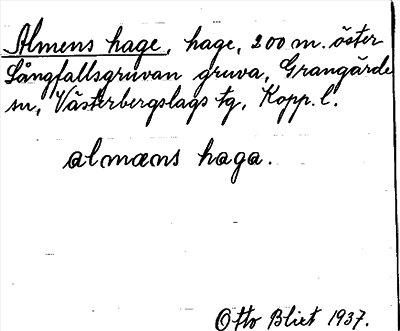 Almens hage, hage, 200 m. öster
Långfallsgruvan gruva, Grangärde
sn, Västerbergslags tg, Kopp. l.
almæns haga.
Otto Blixt 1937.